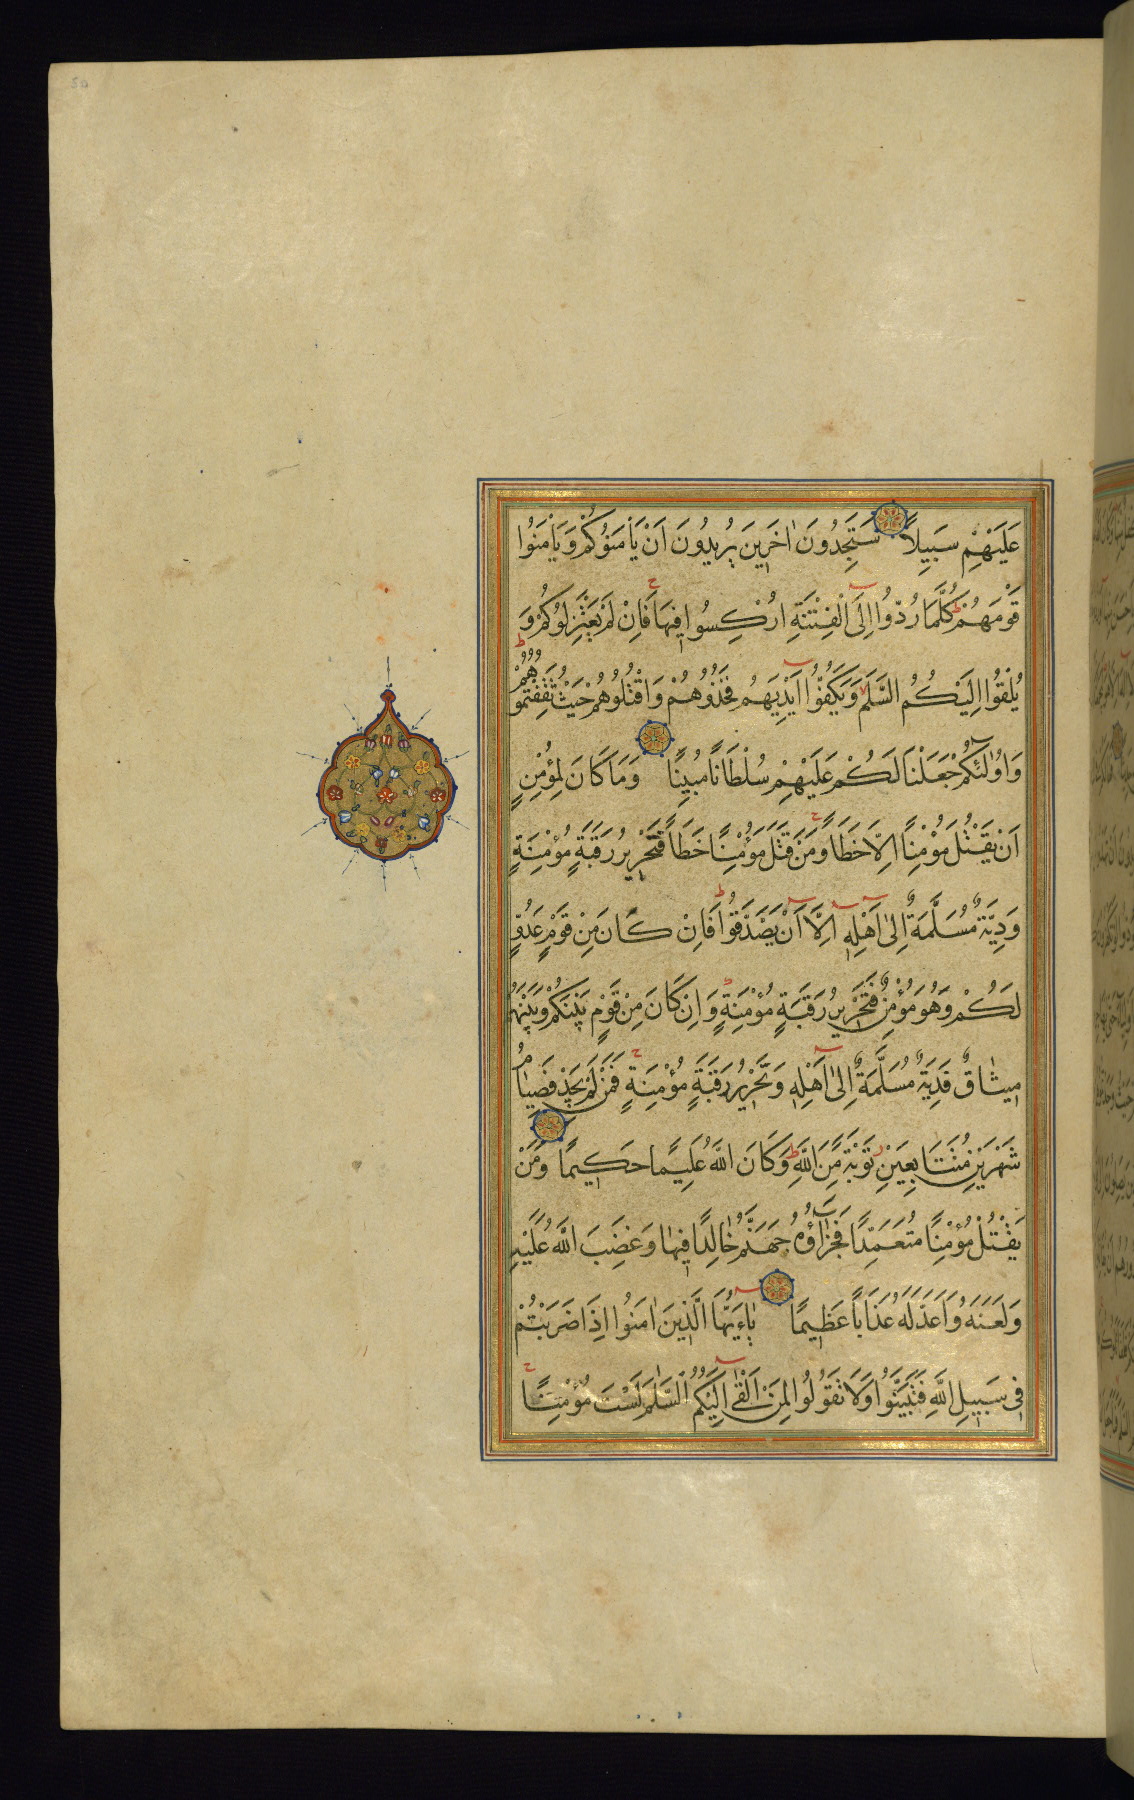 عَلَيْهِمْ سَبِيلًا سَتَجِدُونَ اٰخَرِينَ يُرِيدُونَ اَنْ يَأْمَنُوكُمْ وَيَأْمَنُوا
قَوْمَهُمْ كُلَّمَا رُدُّوا اِلَى الْفِتْنَةِ اُرْكِسُوا فِيهَا فَاِنْ لَمْ يَعْتَزِلُوكُمْ وَ
يُلْقُوا اِلَيْكُمُ السَّلَمَ وَيَكُفُّوا اَيْدِيَهُمْ فَخُذُوهُمْ وَاقْتُلُوهُمْ حَيْثُ ثَقِفْتُمُوهُمْ
وَاُولٰئِكُمْ جَعَلْنَا لَكُمْ عَلَيْهِمْ سُلْطَانًا مُبِينًا وَمَا كَانَ لِمُؤْمِنٍ
اَنْ يَقْتُلَ مُؤْمِنًا اِلَّا خَطَأً وَمَنْ قَتَلَ مُؤْمِنًا خَطَأً فَتَحْرِيرُ رَقَبَةٍ مُؤْمِنَةٍ
وَدِيَةٌ مُسَلَّمَةٌ اِلٰى اَهْلِهِ اِلَّا اَنْ يَصَّدَّقُوا فَاِنْ كَانَ مِنْ قَوْمٍ عَدُوٍّ
لَكُمْ وَهُوَ مُؤْمِنٌ فَتَحْرِيرُ رَقَبَةٍ مُؤْمِنَةٍ وَاِنْ كَانَ مِنْ قَوْمٍ بَيْنَكُمْ وَبَيْنَهُمْ
مِيثَاقٌ فَدِيَةٌ مُسَلَّمَةٌ اِلٰى اَهْلِهِ وَتَحْرِيرُ رَقَبَةٍ مُؤْمِنَةٍ فَمَنْ لَمْ يَجِدْ فَصِيَامُ
شَهْرَيْنِ مُتَتَابِعَيْنِ تَوْبَةً مِنَ اللّٰهِ وَكَانَ اللّٰهُ عَلِيمًا حَكِيمًا وَمَنْ
يَقْتُلْ مُؤْمِنًا مُتَعَمِّدًا فَجَزَاؤُهُ جَهَنَّمُ خَالِدًا فِيهَا وَغَضِبَ اللّٰهُ عَلَيْهِ
وَلَعَنَهُ وَاَعَدَّ لَهُ عَذَابًا عَظِيمًا يَاءَيُّهَا الَّذِينَ اٰمَنُوا اِذَا ضَرَبْتُمْ
فِي سَبِيلِ اللّٰهِ فَتَبَيَّنُوا وَلَا تَقُولُوا لِمَنْ اَلْقٰى اِلَيْكُمُ السَّلَامَ لَسْتَ مُؤْمِنًا
50